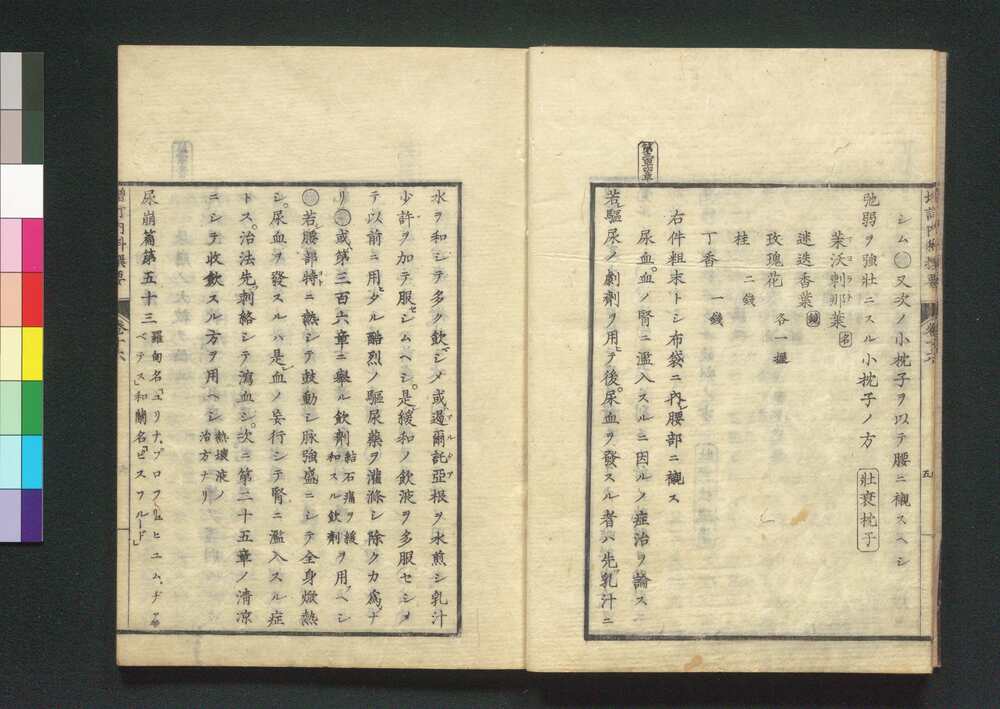 シム又次ノ小枕子ヲ以テ腰ニ襯スヘシ
弛弱ヲ強壮ニスル小枕子ノ方 壮衰枕子
葉沃刺那葉 名
迷迭香葉
玫瑰花 各一握
桂 二錢
丁香 一錢
右件粗末トシ布袋ニ内レ腰部ニ襯ス
尿血血ノ腎ニ濫入スルニ因ルノ症治ヲ論ス
若シ驅尿ノ劇劑ヲ用テ後尿血ヲ發スル者ハ先乳汁ニ
水ヲ和シテ多ク飲シメ或遏爾託亞根ヲ水煎シ乳汁
少許ヲ加テ服セシムヘシ是緩和ノ飲液ヲ多服セシメ
テ以前ニ用ヒタル酷烈ノ驅尿藥ヲ灌滌シ除クカ爲ナ
リ或ハ第三百六章ニ擧ル飲劑 結石痛ヲ緩和スル飲劑 ヲ用フヘシ
若腰部特ニ熱シテ鼓動シ脉強盛ニシテ全身焮熱
シ尿血ヲ發スルハ是血ノ妄行シテ腎ニ濫入スル症
トス治法先刺絡シテ瀉血シ次ニ第二十五章ノ清凉
ニシテ收斂スル方ヲ用ヘシ 熱壊液ノ治方ナリ
尿崩篇第五十三 羅甸名
増訂内科撰要 卷十六
五